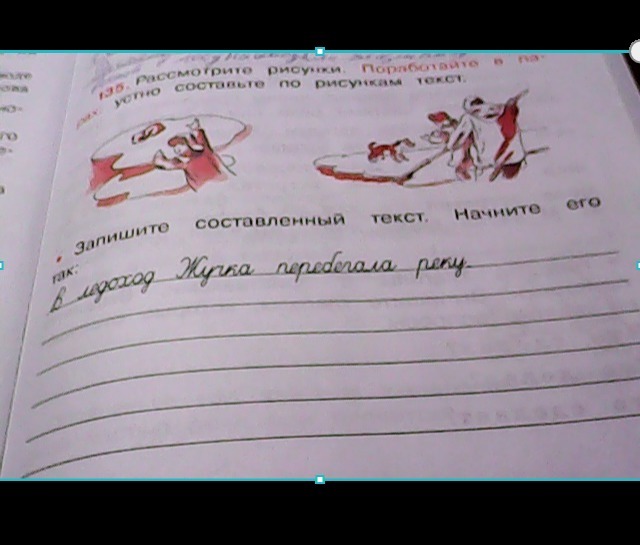 135. Рассмотрите рисунки. Поработайте в па-
рах: устно составьте по рисункам текст.
• Запишите составленный текст. Начните его
так:
В ледоход Жучка перебегала реку.